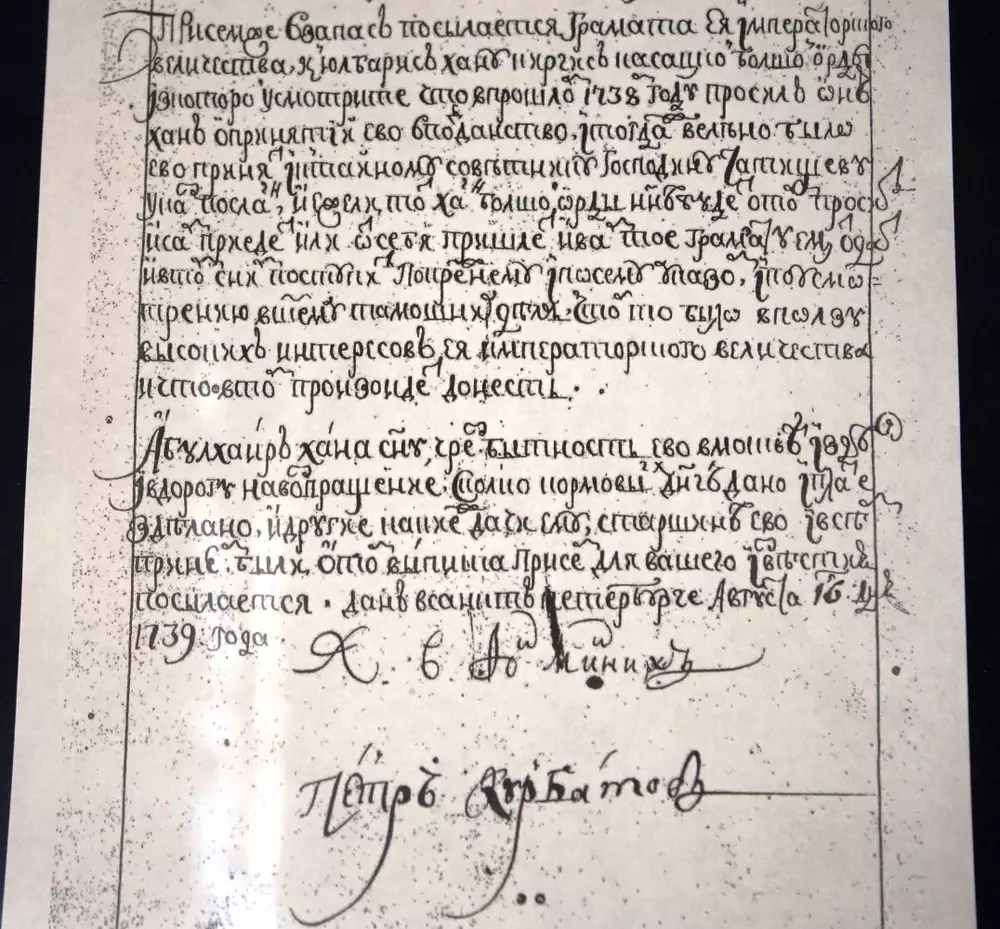 При семже в запас посылается грамата Ея Императорского
величества, к Юлбарисъ хану киргисъ касацкой болшой орды
ис которой усмотрите что в прошлом 1738 году просилъ онъ
ханъ о принятии ево в подданство, и тогда велено было
ево принять и тайному советнику господину Татищеву
послать, и ежели тот хан болшой орды ныне будет о том прос
и сам приедет или от себя пришлет и вам тое грамату ему отдать
и в том с ним поступить по прежнему и по сему указо, и по усмо=
трению вашему тамошних дел. чтоб то было в ползу
высоких интересовъ, Ея Императорского величества
и что по том произойдет донесть.
Абулхаиръ хана сыну, чрез бытность ево в Москве и здесь
и в дорогу на вопрашение. сколко кормовых денегъ дано и платья
зделано, и другие какие дачи ему, старшинъ ево и в сви
при нем были, о том выписка при сем для вашего известия
посылается. Данъ в Санктъ Петербурге Августа 16. дня
1739: года
Х В Фон Минихъ
Пётръ Курбатов